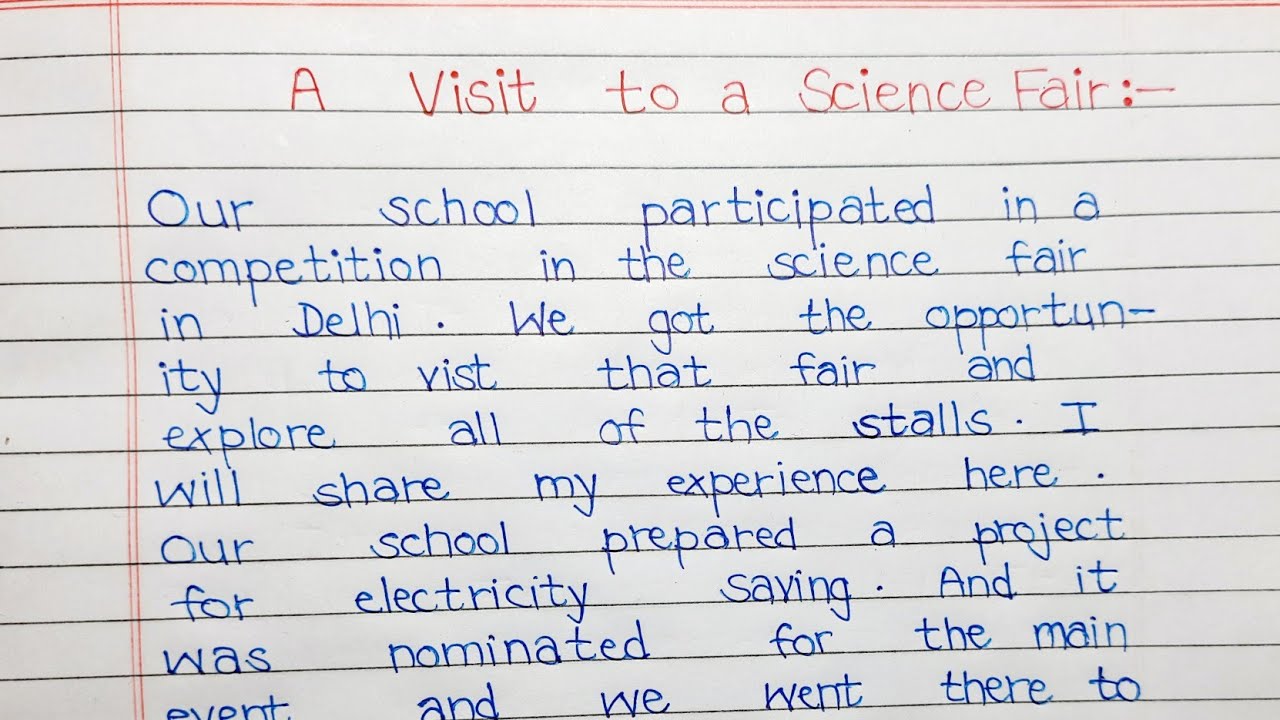 A Visit to a Science Fair:-
Our school participated in a
competition in the science fair
in Delhi. We got the opportun-
ity to vist that fair and
explore all of the stalls. I
will share my experience here.
Our school prepared a project
for electricity saving. And it
was nominated for the main
event and we went there to